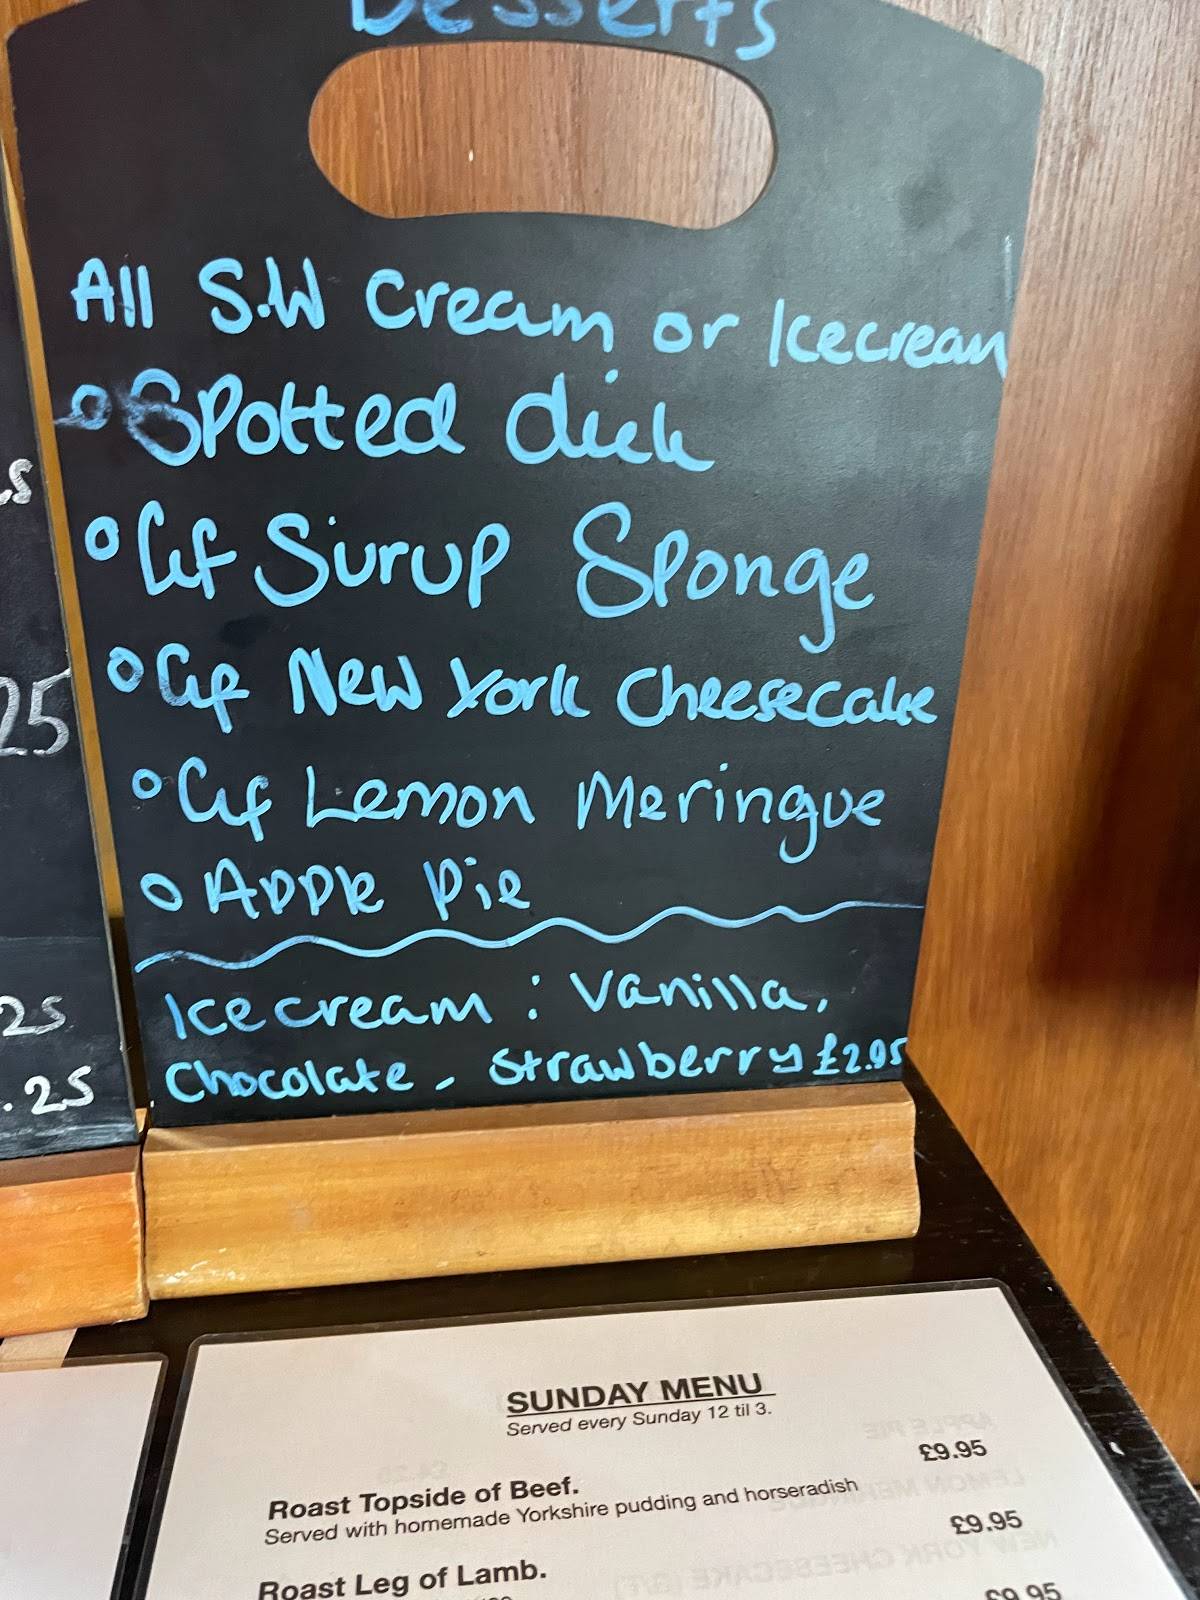 Desserts
All S.W Cream or Icecream
Spotted dick
Gf Sirup Sponge
Gf New York Cheesecake
Gf Lemon Meringue
Apple Pie
Icecream : Vanilla,
Chocolate, Strawberry £2.95
25
25
.25
SUNDAY MENU
Served every Sunday 12 til 3.
Roast Topside of Beef. £9.95
Served with homemade Yorkshire pudding and horseradish
Roast Leg of Lamb. £9.95
£9.95